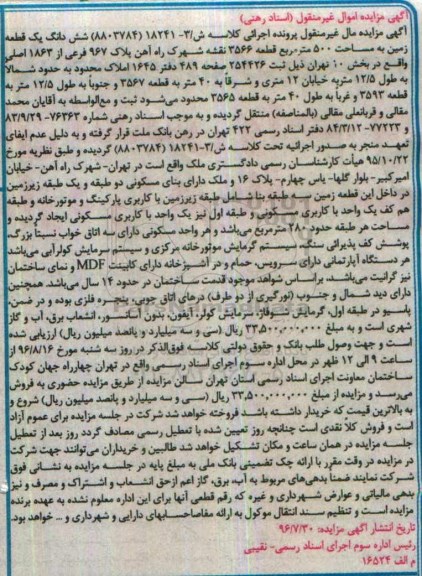 آگهی مزایده اموال غیرمنقول (اسناد رهنی)
آگهی مزایده مال غیرمنقول پرونده اجرائی کلاسه ش/۳- ۱۸۲۴۱ (۸۸۰۳۷۸۴) شش دانگ یک قطعه
زمین به مساحت ۵۰۰ متر مربع قطعه ۳۵۶۶ نقشه شهرک راه آهن پلاک ۹۶۷ فرعی از ۱۸۶۳ اصلی
واقع در بخش ۱۰ تهران ذیل ثبت ۲۵۴۴۲۶ صفحه ۴۸۹ دفتر ۱۶۴۵ املاک محدود به حدود شمالا
به طول ۱۲/۵ متر به خیابان ۱۲ متری و شرقاً به ۴۰ متر به قطعه ۳۵۶۷ و جنوباً به طول ۱۲/۵ متر به
قطعه ۳۵۹۳ و غرباً به طول ۴۰ متر به قطعه ۳۵۶۵ محدود می‌شود ثبت و مع‌الواسطه به آقایان محمد
مقالی و قربانعلی مقالی (بالمناصفه) منتقل گردیده و به موجب اسناد رهنی شماره ۷۶۳۶۳- ۸۳/۹/۲۹
و ۷۷۲۲۳- ۸۴/۳/۱۲ دفتر اسناد رسمی ۴۲۲ تهران در رهن بانک ملت قرار گرفته و به دلیل عدم ایفای
تعهد منجر به صدور اجرائیه تحت کلاسه ش/۳-۱۸۲۴۱ (۸۸۰۳۷۸۴) گردیده و طبق نظریه مورخ
۹۵/۱۰/۲۲ هیأت کارشناسان رسمی دادگستری ملک واقع است در تهران- شهرک راه آهن- خیابان
امیرکبیر- بلوار گلها- یاس چهارم- پلاک ۱۶ و ملک دارای بنای مسکونی دو طبقه و یک طبقه زیرزمین
در داخل این قطعه زمین سه طبقه بنا شامل طبقه زیرزمین با کاربری پارکینگ و موتورخانه و طبقه
هم کف یک واحد با کاربری مسکونی و طبقه اول نیز یک واحد با کاربری مسکونی ایجاد گردیده و
مساحت هر طبقه حدود ۲۸۰ مترمربع می‌باشد و هر واحد مسکونی دارای سه اتاق خواب نسبتاً بزرگ
پوشش کف پذیرائی سنگ، سیستم گرمایش موتورخانه مرکزی و سیستم سرمایش کولرآبی می‌باشد
هر دستگاه آپارتمانی دارای سرویس، حمام و در آشپزخانه دارای کابینت MDF و نمای ساختمان
نیز گرانیت می‌باشد. براساس شواهد موجود قدمت ساختمان در حدود ۱۴ سال می‌باشد. همچنین
دارای دید شمال و جنوب (نورگیری از دو طرف) درهای اتاق چوبی، پنجره فلزی بوده و در ضمن،
پاسیو در طبقه اول، گرمایش شوفاژ، سرمایش کولر، آیفون، بدون آسانسور، انشعاب برق، آب و گاز
شهری است و به مبلغ ۳۳,۵۰۰,۰۰۰,۰۰۰ ریال (سی و سه میلیارد و پانصد میلیون ریال) ارزیابی شده
است و جهت وصول طلب بانک و حقوق دولتی کلاسه فوق‌الذکر در روز سه شنبه مورخ ۹۶/۸/۱۶ از
ساعت ۹ الی ۱۲ ظهر در محل اداره سوم اجرای اسناد رسمی واقع در تهران چهارراه جهان کودک
ساختمان معاونت اجرای اسناد رسمی استان تهران سالن مزایده از طریق مزایده حضوری به فروش
می‌رسد و مزایده از مبلغ ۳۳,۵۰۰,۰۰۰,۰۰۰ ریال (سی و سه میلیارد و پانصد میلیون ریال) شروع و
به بالاترین قیمت که خریدار داشته باشد فروخته خواهد شد شرکت در جلسه مزایده برای عموم آزاد
است و فروش کلا نقدی است چنانچه روز تعیین شده با تعطیل رسمی مصادف گردد روز بعد از تعطیل
جلسه مزایده در همان ساعت و مکان تشکیل خواهد شد طالبین و خریداران می‌توانند جهت شرکت
در مزایده در وقت مقرر با ارائه چک تضمینی بانک ملی به مبلغ پایه در جلسه مزایده به نشانی فوق
شرکت نمایند ضمناً بدهی‌های مربوط به آب، برق، گاز اعم از حق انشعاب و اشتراک و مصرف و نیز
بدهی مالیاتی و عوارض شهرداری و غیره که رقم قطعی آنها برای این اداره معلوم نشده به عهده برنده
مزایده است و تنظیم سند انتقال موکول به ارائه مفاصاحسابهای دارایی و شهرداری و .. خواهد بود.
تاریخ انتشار آگهی مزایده: ۹۶/۷/۳۰
رئیس اداره سوم اجرای اسناد رسمی- نقیبی
م الف ۱۶۵۲۴